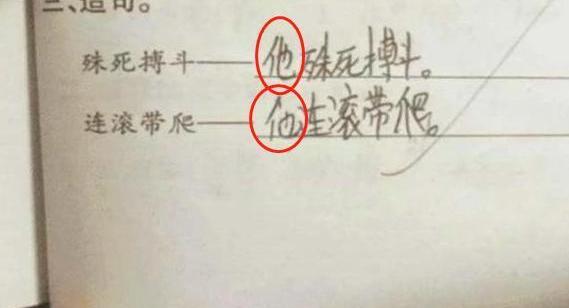 三、造句。
殊死搏斗——他殊死搏斗。
连滚带爬——他连滚带爬。